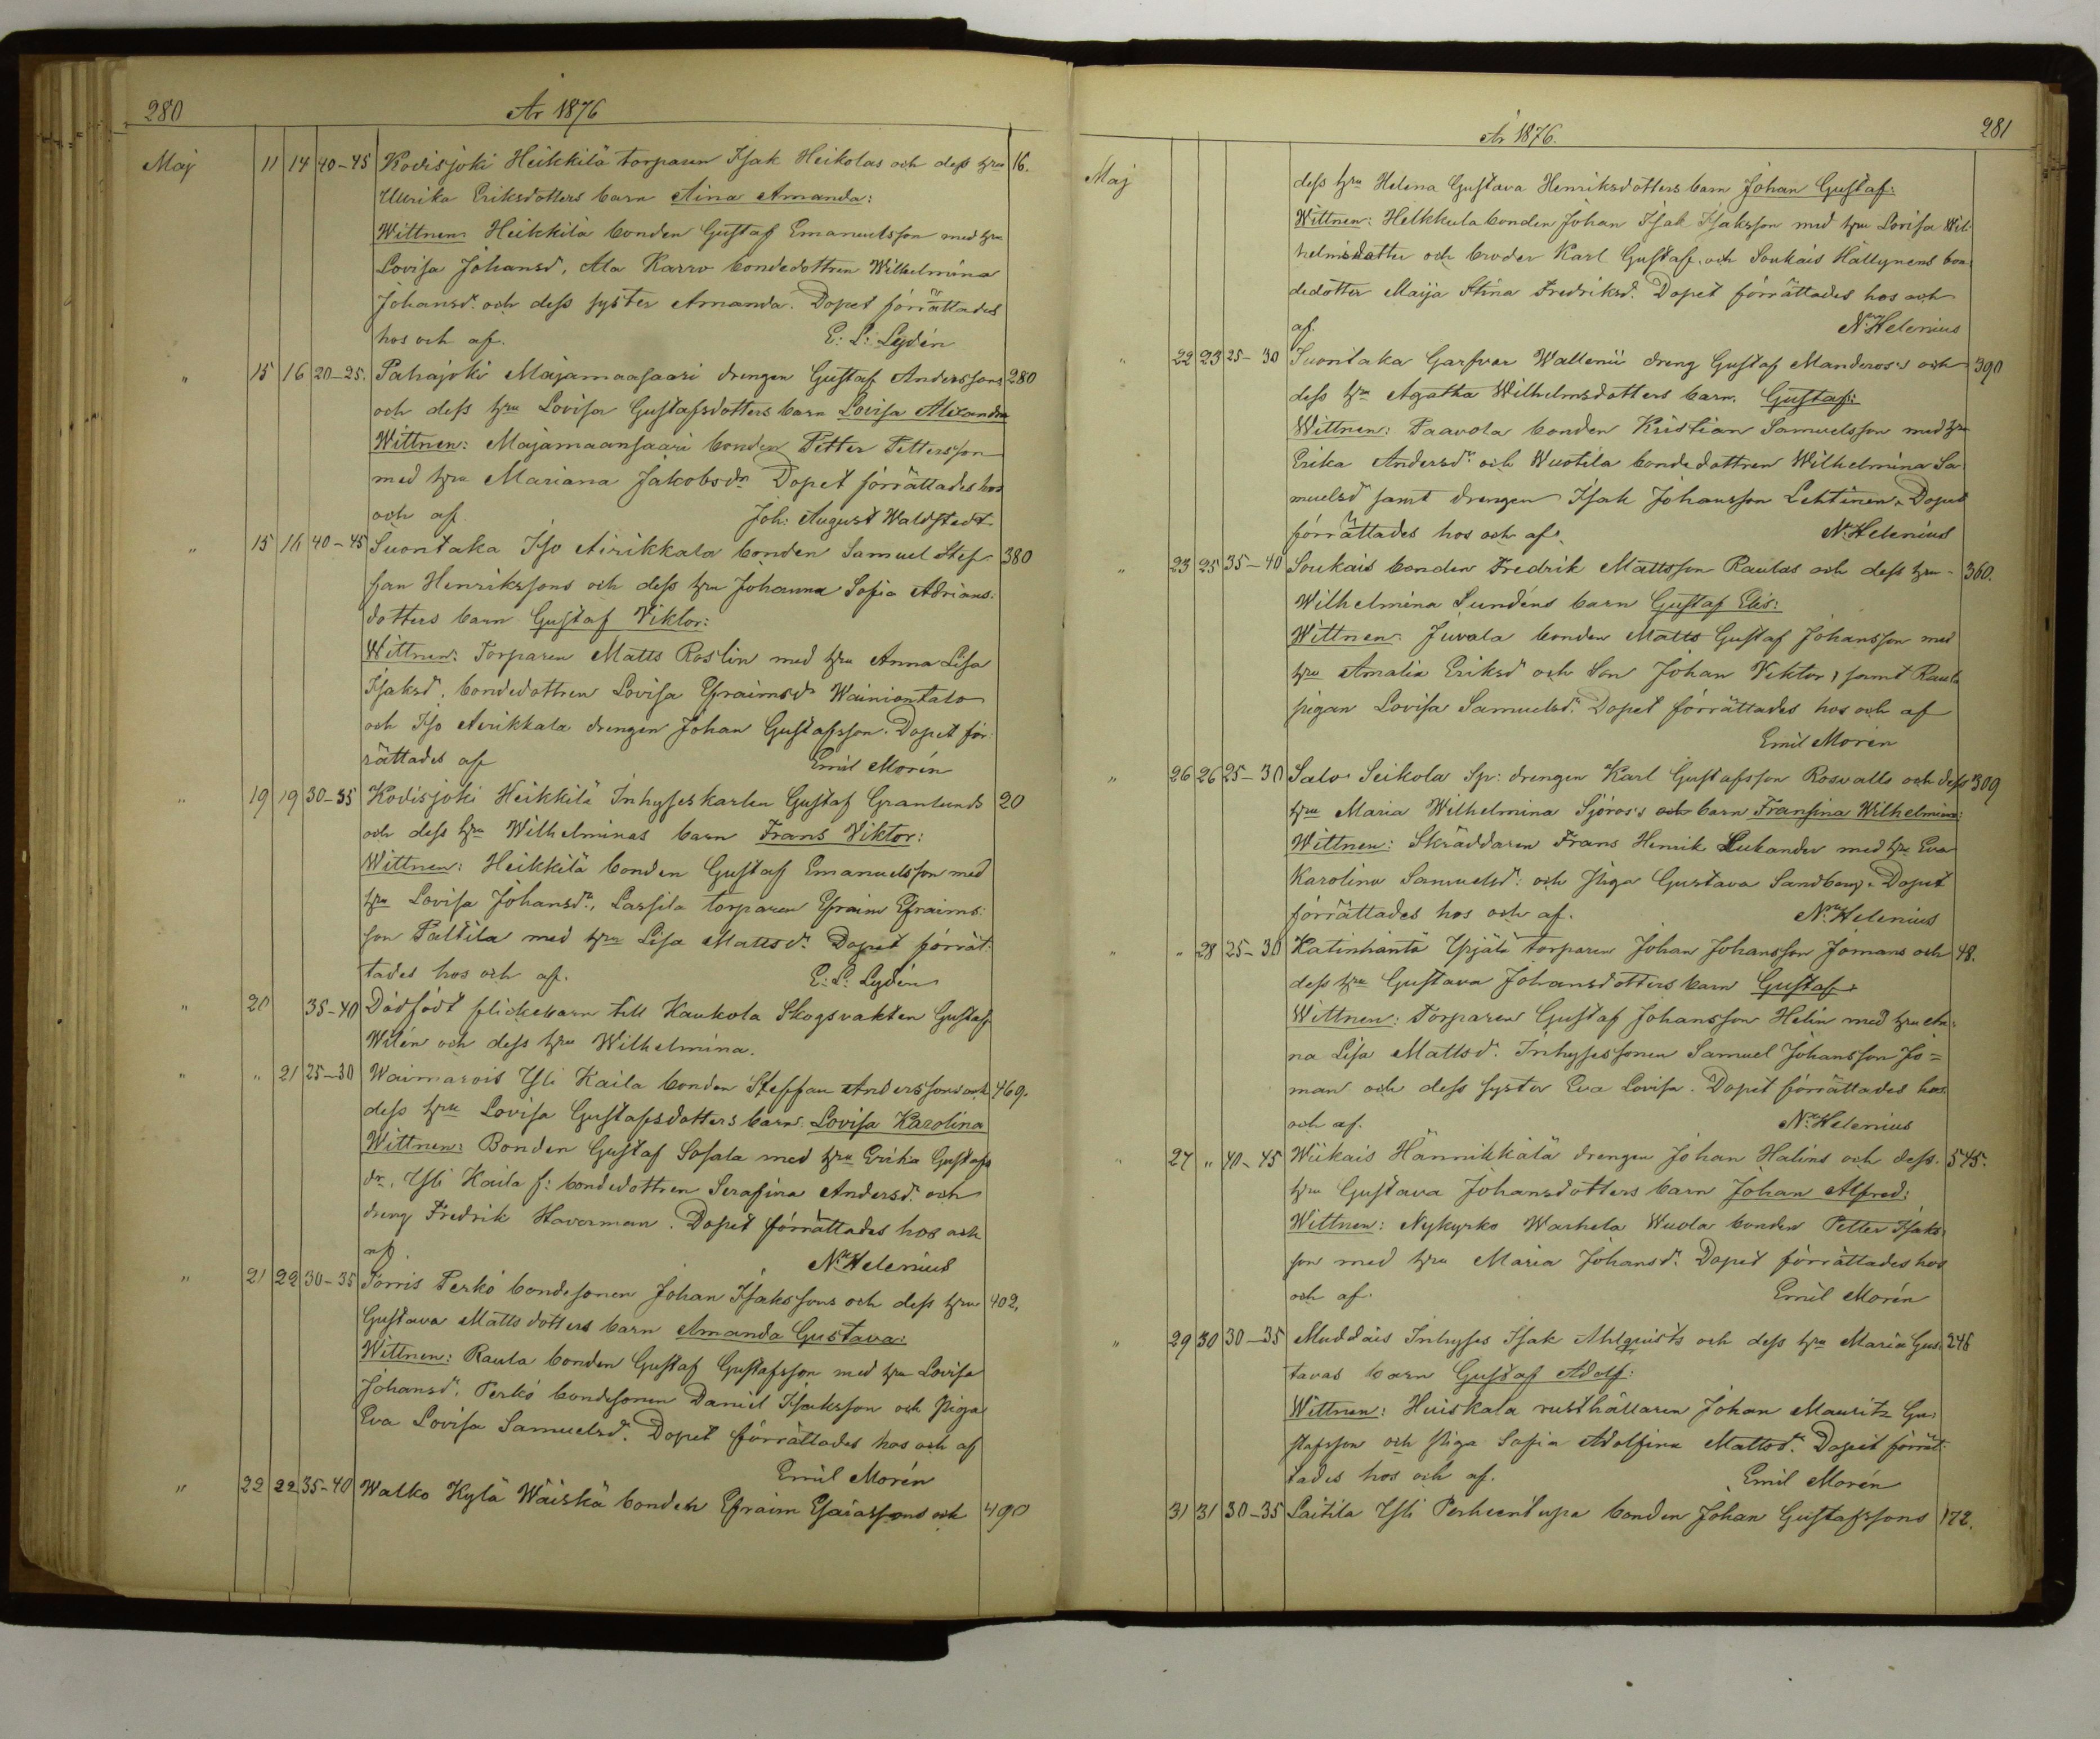 280
År 1876
Maj 11 14 40-45 Kodisjoki Heikkilä torparen Isak Heikolas och dess hru 16.
Ulrika Eriksdotters barn Aina Amanda:
Wittnen: Heikkilä bonden Gustaf Emanuelsson med hru
Lovisa Johansd, Ala Karro bondedottren Wilhelmina
Johansd. och dess syster Amanda. Dopet förrättades
hos och af. E: L: Lydén
" 15 16 20-25. Pahajoki Majamaasaari drengen Gustaf Anderssons 280
och dess hru Lovisa Gustafsdotters barn Lovisa Alexandra
Wittnen: Majamaansaari bonden Petter Pettersson
med hru Mariana Jakobsdr Dopet förrättades hos
och af Joh: August Waldstedt
" 15 16 40-45 Suontaka Iso Airikkala bonden Samuel Stef 380
fan Henrikssons och dess hru Johanna Sofia Adrians:
dotters barn Gustaf Viktor:
Wittnen: Torparen Matts Roslin med hru Anna Lisa
Isaksd, bondedottren Lovisa Efraimsdr Wainiontalo
och Iso Airikkala drengen Johan Gustafsson. Dopet för:
rättades af Emil Morén
" 19 19 30-35 Kodisjoki Heikkilä Inhyseskarlen Gustaf Granlunds 20
och dess hru Wilhelminas barn Frans Viktor:
Wittnen: Heikkilä bonden Gustaf Emanuelsson med
hru Lovisa Johansdr, Lassila torparen Efraim Efraims:
son Paltila med hru Lisa Mattsdr. Dopet förrät:
tades hos och af. E: L: Lydén
" 20 35-40 Dödfödt flickebarn till Kaukola Skogsvakten Gustaf
Wilén och dess hru Wilhelmina.
" " 21 25-30 Waimarois Yli Kaila bonden Steffan Anderssons och 469.
dess hru Lovisa Gustafsdotters barn. Lovisa Karolina
Wittnen: Bonden Gustaf Sosala med hru Erika Gustafs
dr, Yli Kaila f: bondedottren Serafina Andersd. och
dreng Fredrik Haverman. Dopet förrättades hos och
af. Nr Helenius
" 21 22 30-35 Torris Perkö bondesonen Johan Isakssons och dess hru 402.
Gustava Mattsdotters barn Amanda Gustava:
Wittnen: Raula bonden Gustaf Gustafsson med hru Lovisa
Johansdr. Perkö bondesonen Daniel Isaksson och Piga
Eva Lovisa Samuelsd. Dopet förrättades hos och af
Emil Morén
" 22 22 35-40 Walko Kylä Wäiskä bonden Efraim Esaiassons och 490
281
År 1876.
Maj
dess hru Helena Gustava Henriksdotters barn Johan Gustaf:
Wittnen: Helkkula bonden Johan Isak Isaksson med hru Lovisa Wil:
helmsdotter och broder Karl Gustaf. och Soukais Hällynens bon
dedotter Maija Stina Fredriksd. Dopet förrättades hos och
af. Nr Helenius
" 22 23 25-30 Suontaka Garfvar Wallenii dreng Gustaf Manderos's och 390
dess hru Agatha Wilhelmsdotters barn. Gustaf:
Wittnen: Paavola bonden Kristian Samuelsson med hru
Erika Andersdr och Wuotila bondedottren Wilhelmina Sa
muelsd samt drengen Isak Johansson Lehtinen. Dopet
förrättades hos och af. Nr Helenius
" 23 25 35-40 Soukais bonden Fredrik Mattsson Raulas och dess hru 360.
Wilhelmina Lundéns barn Gustaf Elis:
Wittnen: Juvala bonden Matts Gustaf Johansson med
hru Amalia Eriksd och Son Johan Viktor, samt Raula
pigan Lovisa Samuelsd. Dopet förrättades hos och af
Emil Morén
" 26 26 25-30 Salo Seikola Sp: drengen Karl Gustafsson Roswalls och dess 309
hru Maria Wilhelmina Sjöros's barn Fransina Wilhelmina:
Wittnen: Skräddaren Frans Henrik Lukander med hru Eva
Karolina Samuelsd: och Piga Gustava Sandberg. Dopet
förrättades hos och af. Nr Helenius
" " 28 25-30 Katinhäntä Ypjälä torparen Johan Johansson Jomans och 48.
dess hru Gustava Johansdotters barn Gustaf.
Wittnen: Torparen Gustaf Johansson Helin med hru An:
na Lisa Mattsd. Inhysessonen Samuel Johansson Jo=
man och dess syster Eva Lovisa. Dopet förrättades hos
och af. Nr Helenius
27 " 40-45 Wiikais Hännikkälä drengen Johan Halins och dess 545.
hru Gustava Johansdotters barn Johan Alfred:
Wittnen: Nykyrko Warhela Wuola bonden Petter Isaks
son med hru Maria Johansd. Dopet förrättades hos
och af. Emil Morén
" 29 30 30-35 Muddais Inhyses Isak Ahlquists och dess hru Maria Gus: 246
tavas barn Gustaf Adolf:
Wittnen: Huiskala rusthållaren Johan Mauritz Gu:
stafsson och Piga Sofia Adolfina Mattsd. Dopet förrät:
tades hos och af. Emil Morén
31 31 30-35 Laitila Yli Perheentupa bonden Johan Gustafssons 172.